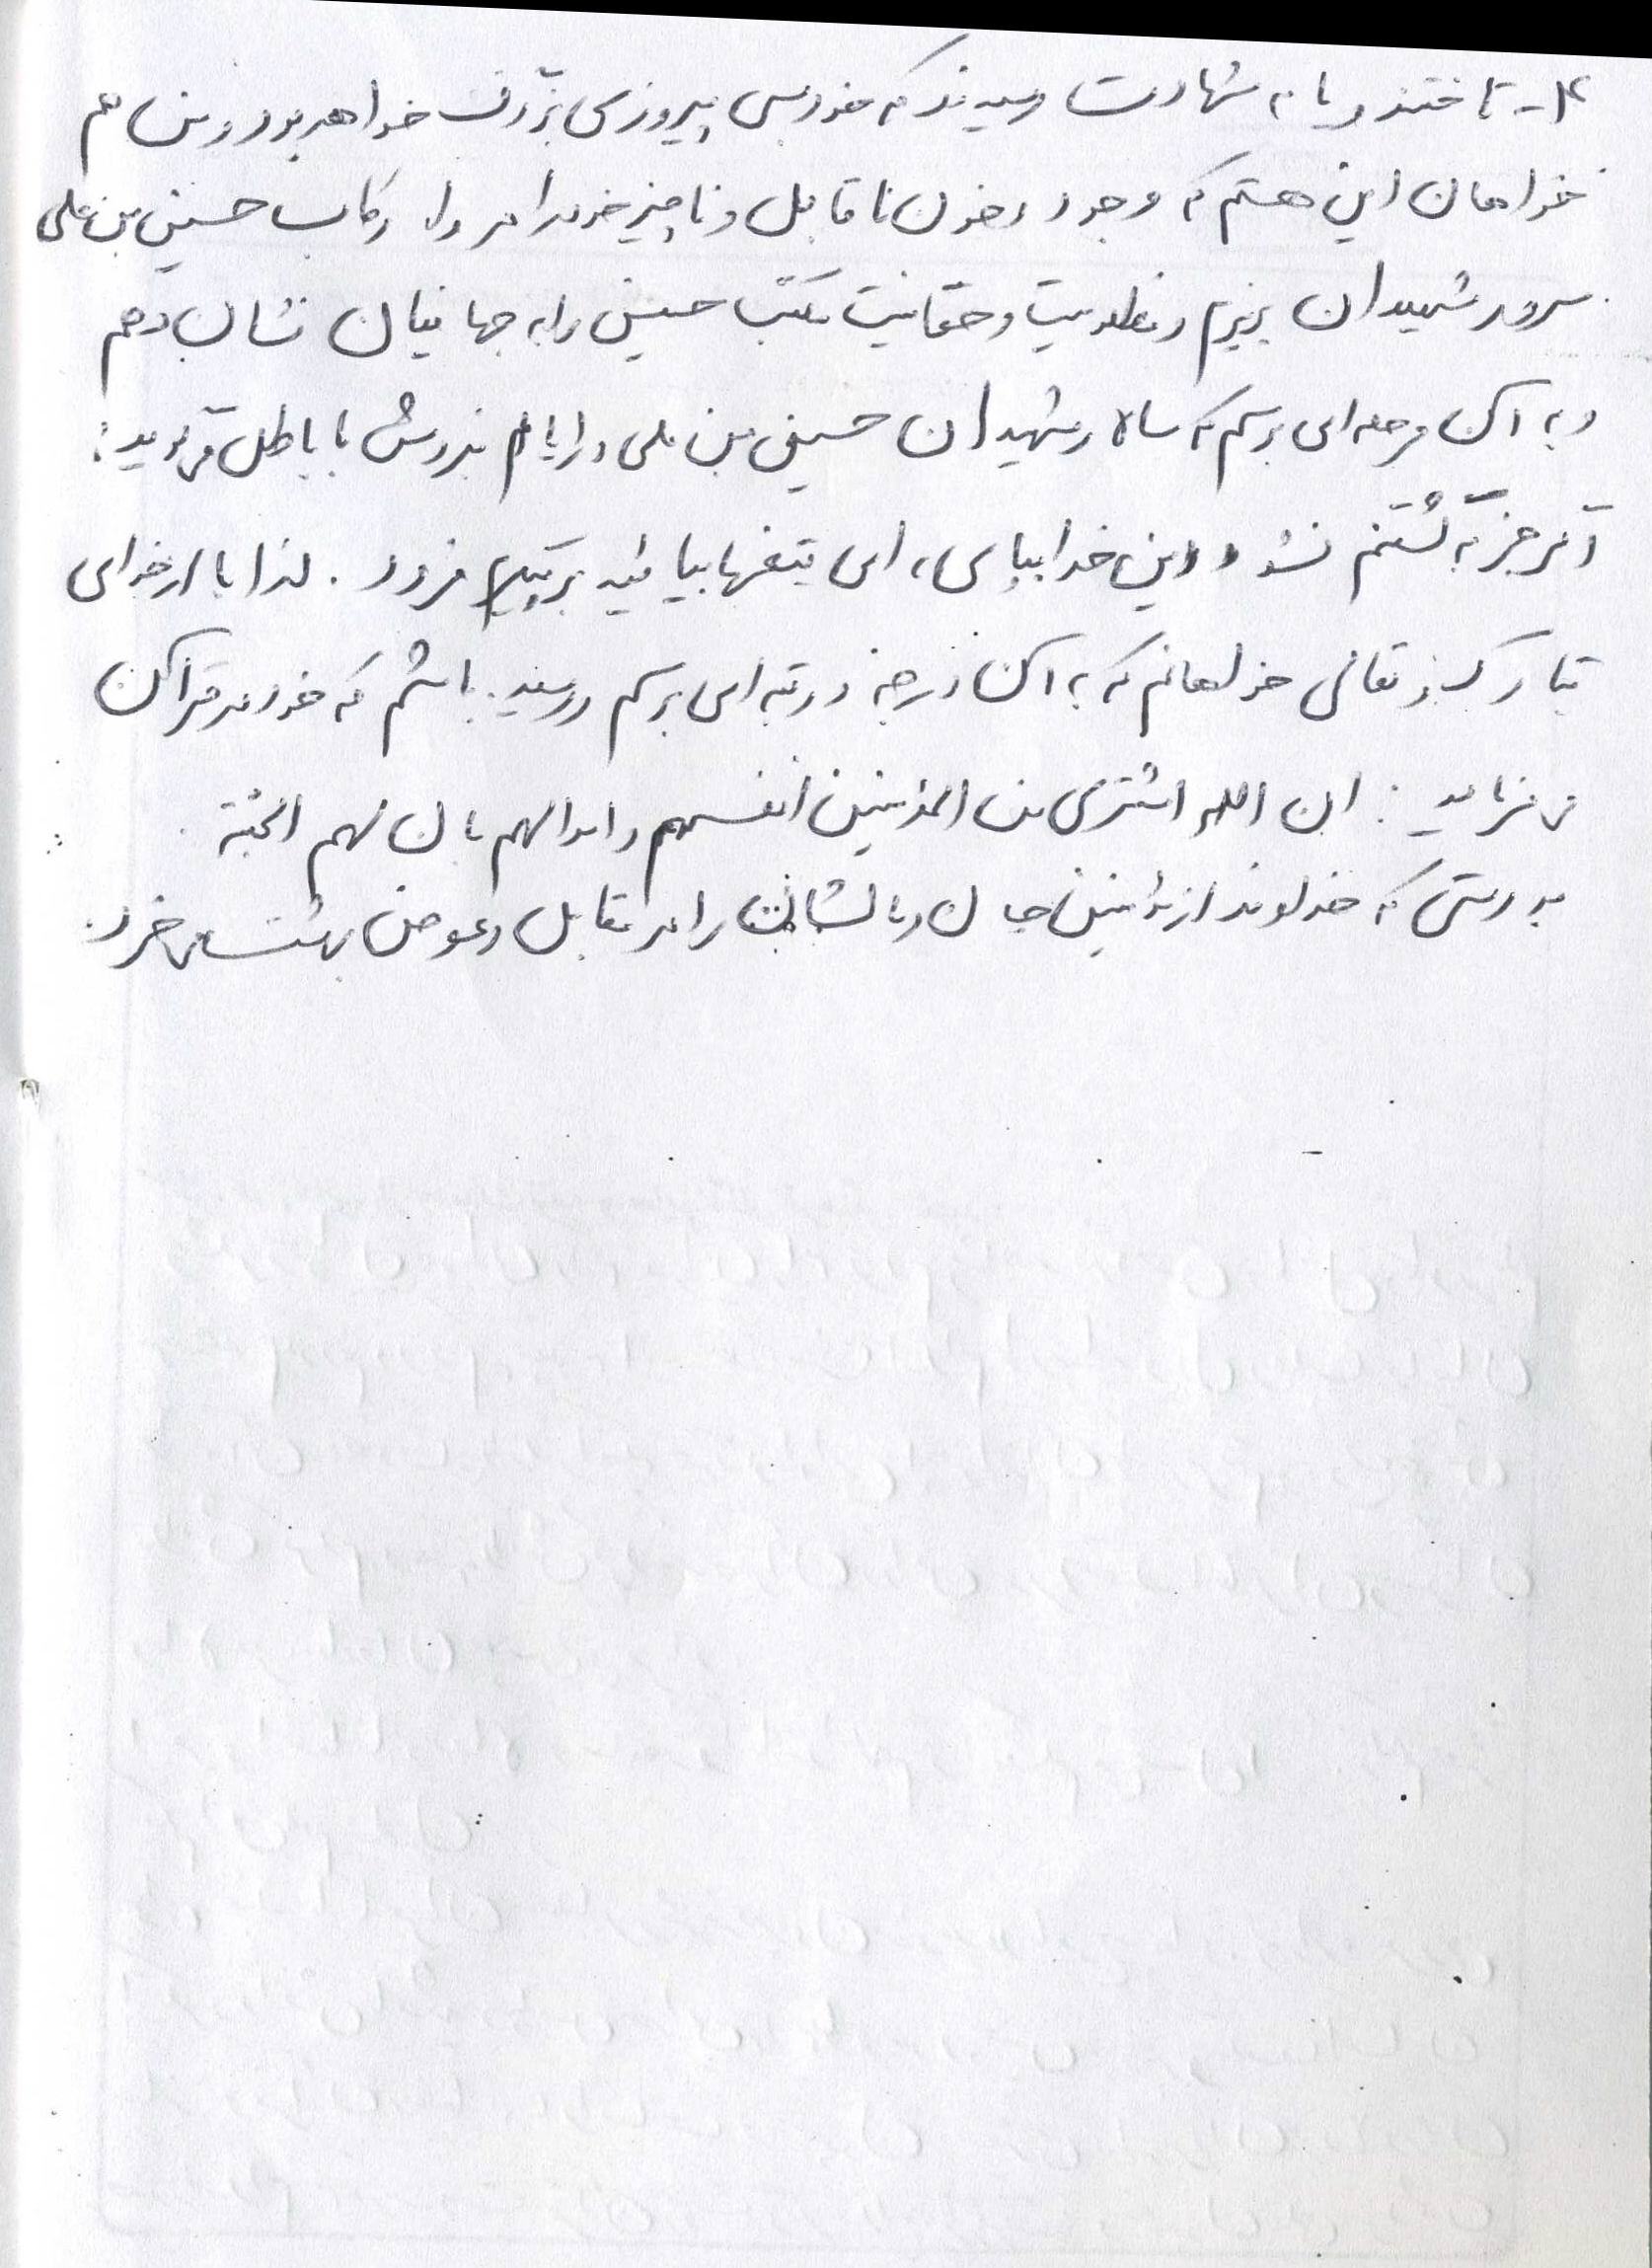 ۴- تاختند و یا به شهادت رسیدند که خود بسی پیروزی بزرگ خواهد بود و من هم
خواهان این هستم که وجود و خون ناقابل و ناچیز خود را در راه رکاب حسین بن علی
سرور شهیدان بریزم و مظلومیت و حقانیت مکتب حسین را به جهانیان نشان دهم
و به آن مرحله‌ای برسم که سالار شهیدان حسین بن علی در ایام نبردش با باطل می‌گوید:
اگر جز به کشتنم نشود دین خدا بپای، ای تیغها بیائید بر پیکرم فرود. لذا با از خدای
تبارک و تعالی خواهانم که به آن درجه و رتبه‌ای برسم و رسیده باشم که خود در قرآن
می‌فرماید: ان الله اشتری من المؤمنین انفسهم و اموالهم بان لهم الجنة
بدرستی که خداوند از مؤمنین جان و مالشان را در مقابل و عوض بهشت می‌خرد.